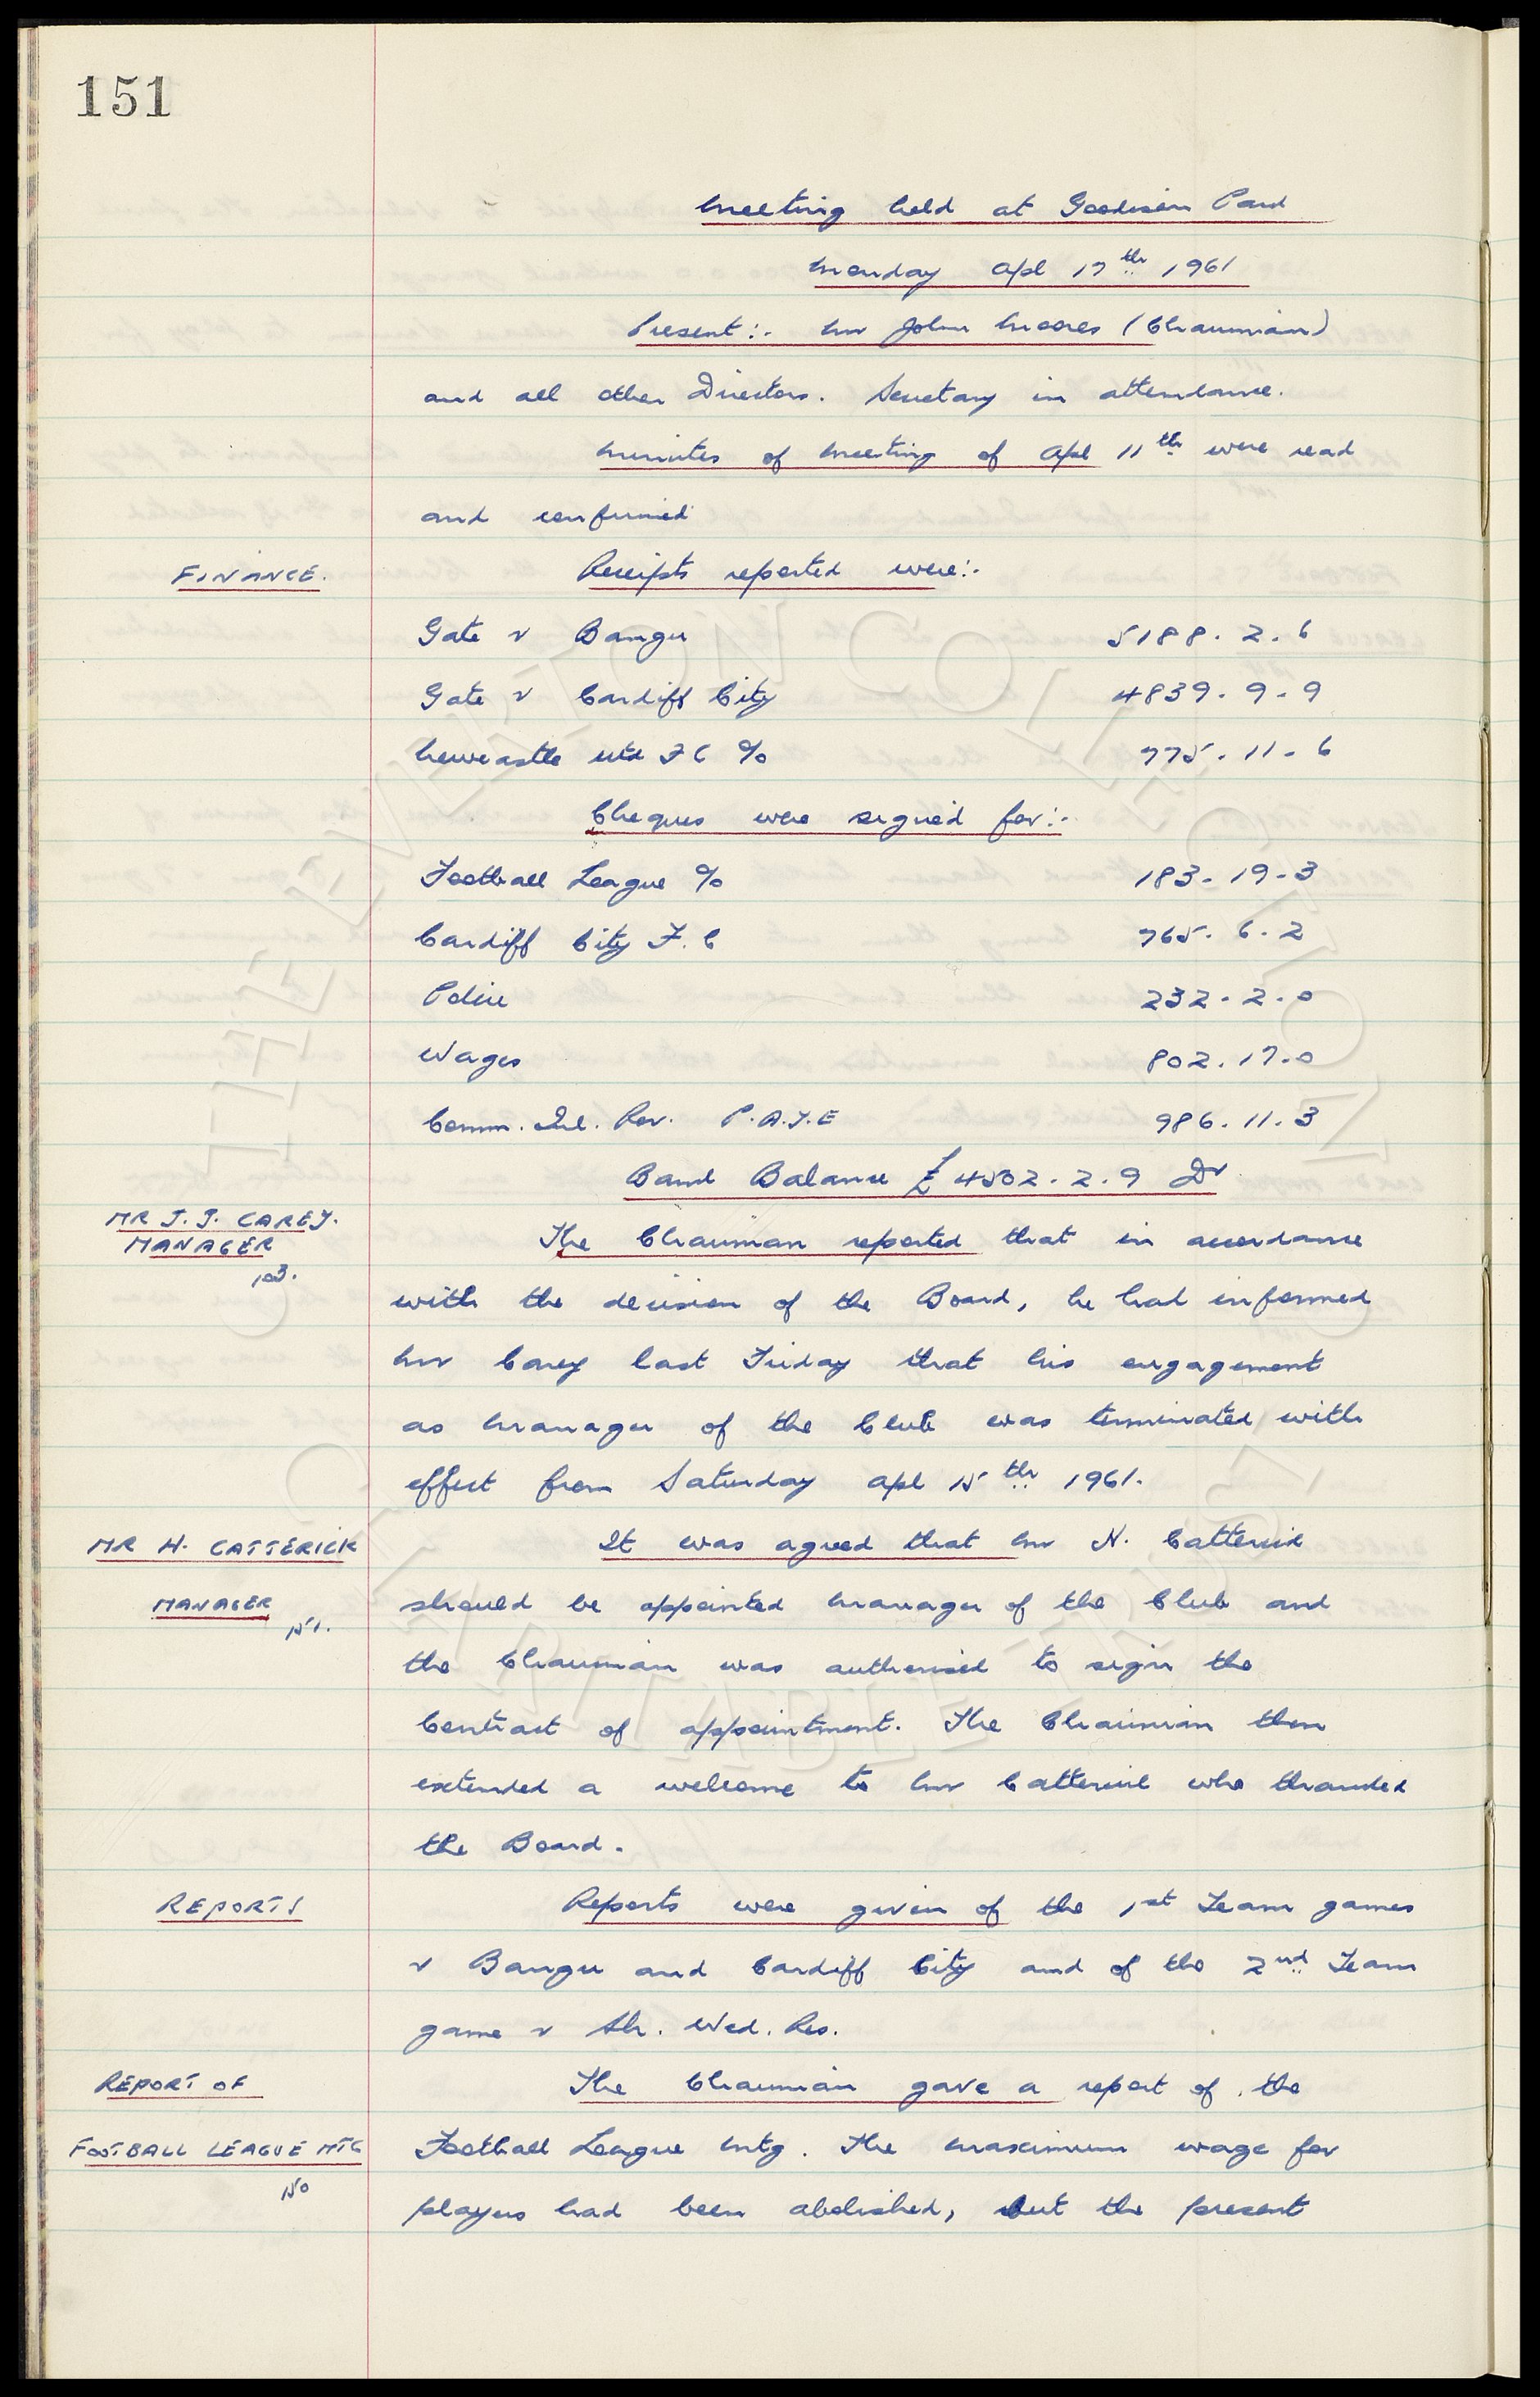 151
Meeting held at Goodison Park
Monday Apl 17th 1961
Present:- Mr John Moores (Chairman)
and all other Directors. Secretary in attendance.
Minutes of Meeting of Apl 11th were read
and confirmed
FINANCE. Receipts reported were:-
Gate v Bangu 5188. 2. 6
Gate v Cardiff City 4839. 9. 9
Newcastle Utd F C % 775. 11. 6
Cheques were signed for:-
Football League % 183. 19. 3
Cardiff City F.C 765. 6. 2
Police 232. 2. 0
Wages 802. 17. 0
Comm. Inl. Rev. P.A.Y.E 986. 11. 3
Bank Balance £4502. 2. 9 Dr
MR J. J. CAREY.
MANAGER
103.
The Chairman reported that in accordance
with the decision of the Board, he had informed
Mr Carey last Friday that his engagement
as Manager of the Club was terminated with
effect from Saturday Apl 15th 1961.
MR H. CATTERICK
MANAGER
151.
It was agreed that Mr H. Catterick
should be appointed Manager of the Club and
the Chairman was authorised to sign the
Contract of appointment. The Chairman then
extended a welcome to Mr Catterick who thanked
the Board.
REPORTS Reports were given of the 1st Team games
v Bangu and Cardiff City and of the 2nd Team
game v Sh. Wed. Res.
REPORT OF
FOOTBALL LEAGUE MTG
150
The Chairman gave a report of the
Football League Mtg. The maximum wage for
players had been abolished, but the present